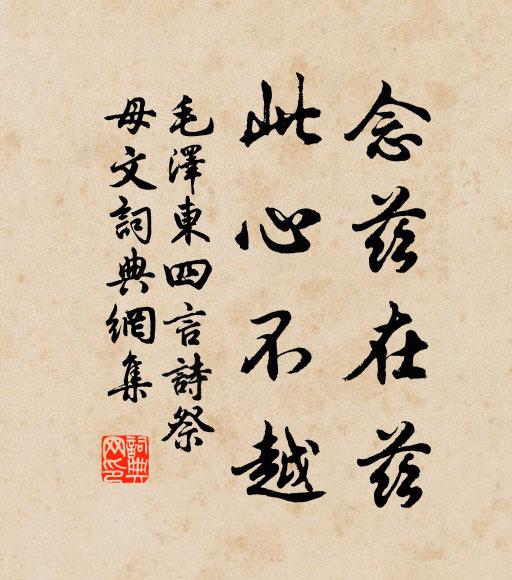 念茲在茲
此心不越
毛澤東四言詩祭
母文詞典網集
詞典
网印